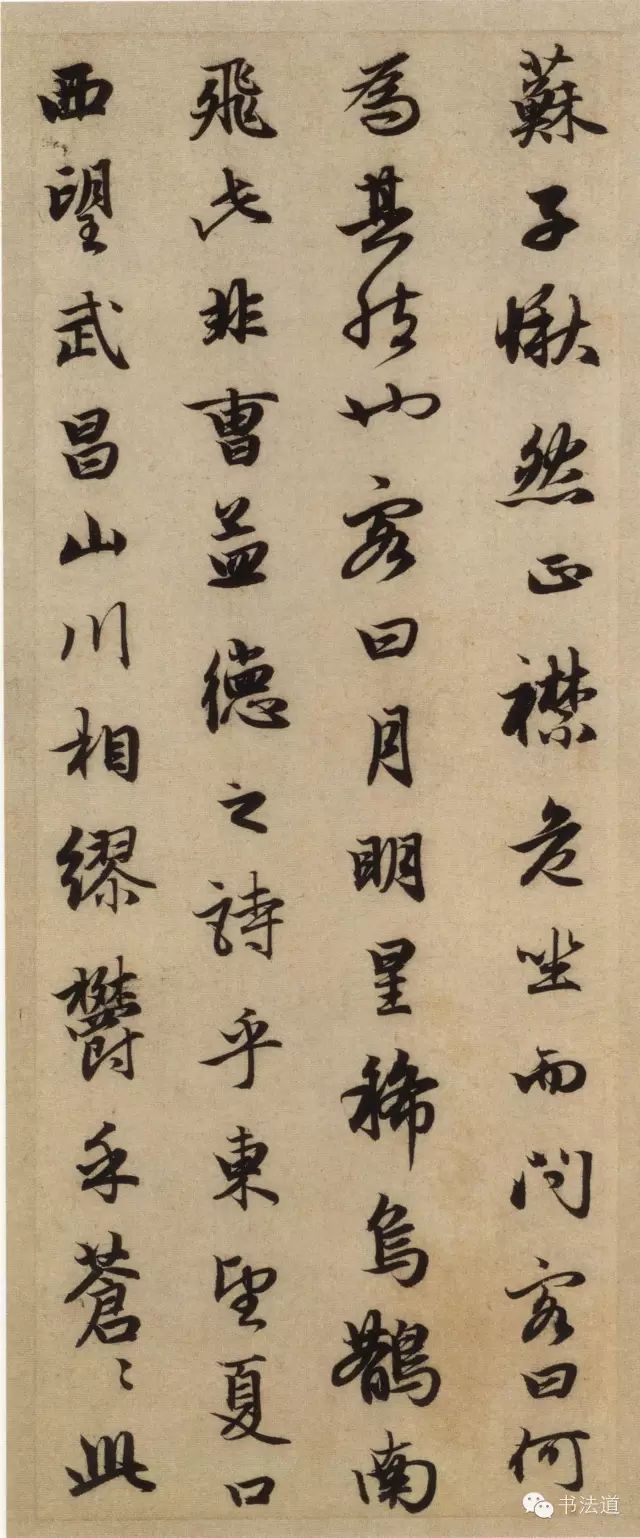 蘇子愀然正襟危坐而問客曰何
為其然也客曰月明星稀烏鵲南
飛此非曹孟德之詩乎東望夏口
西望武昌山川相繆鬱乎蒼〻此
书法道